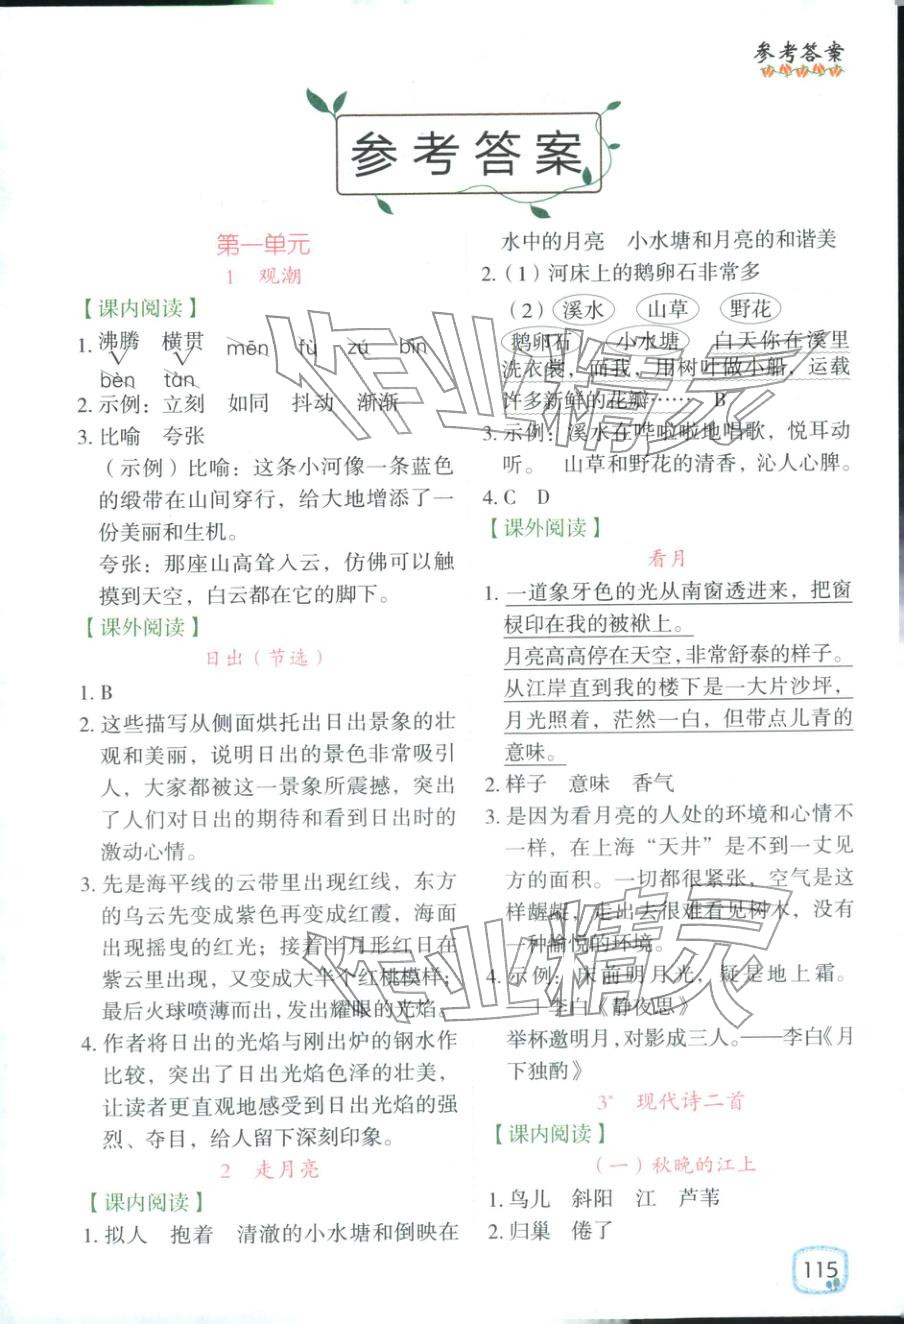 参考答案
参考答案
第一单元
1 观潮
【课内阅读】
1. 沸腾 横贯 mēn fù zú bīn
bèn tān
2. 示例：立刻 如同 抖动 渐渐
3. 比喻 夸张
（示例）比喻：这条小河像一条蓝色
的缎带在山间穿行，给大地增添了一
份美丽和生机。
夸张：那座山高耸入云，仿佛可以触
摸到天空，白云都在它的脚下。
【课外阅读】
日出（节选）
1. B
2. 这些描写从侧面烘托出日出景象的壮
观和美丽，说明日出的景色非常吸引
人，大家都被这一景象所震撼，突出
了人们对日出的期待和看到日出时的
激动心情。
3. 先是海平线的云带里出现红线，东方
的乌云先变成紫色再变成红霞，海面
出现摇曳的红光；接着半月形红日在
紫云里出现，又变成大半个红桃模样；
最后火球喷薄而出，发出耀眼的光焰。
4. 作者将日出的光焰与刚出炉的钢水作
比较，突出了日出光焰色泽的壮美，
让读者更直观地感受到日出光焰的强
烈、夺目，给人留下深刻印象。
2 走月亮
【课内阅读】
1. 拟人 抱着 清澈的小水塘和倒映在
水中的月亮 小水塘和月亮的和谐美
2.（1）河床上的鹅卵石非常多
（2）溪水 山草 野花
鹅卵石 小水塘 白天你在溪里
洗衣裳，而我，用树叶做小船，运载
许多新鲜的花瓣…… B
3. 示例：溪水在哗啦啦地唱歌，悦耳动
听。 山草和野花的清香，沁人心脾。
4. C D
【课外阅读】
看月
1. 一道象牙色的光从南窗透进来，把窗
棂印在我的被袱上。
月亮高高停在天空，非常舒泰的样子。
从江岸直到我的楼下是一大片沙坪，
月光照着，茫然一白，但带点儿青的
意味。
2. 样子 意味 香气
3. 是因为看月亮的人处的环境和心情不
一样，在上海“天井”是不到一丈见
方的面积。一切都很紧张，空气是这
样龌龊，走出去很难看见树木，没有
一种愉悦的环境。
4. 示例：床前明月光，疑是地上霜。
——李白《静夜思》
举杯邀明月，对影成三人。——李白《月
下独酌》
3* 现代诗二首
【课内阅读】
（一）秋晚的江上
1. 鸟儿 斜阳 江 芦苇
2. 归巢 倦了
115
作业精灵
作业精灵